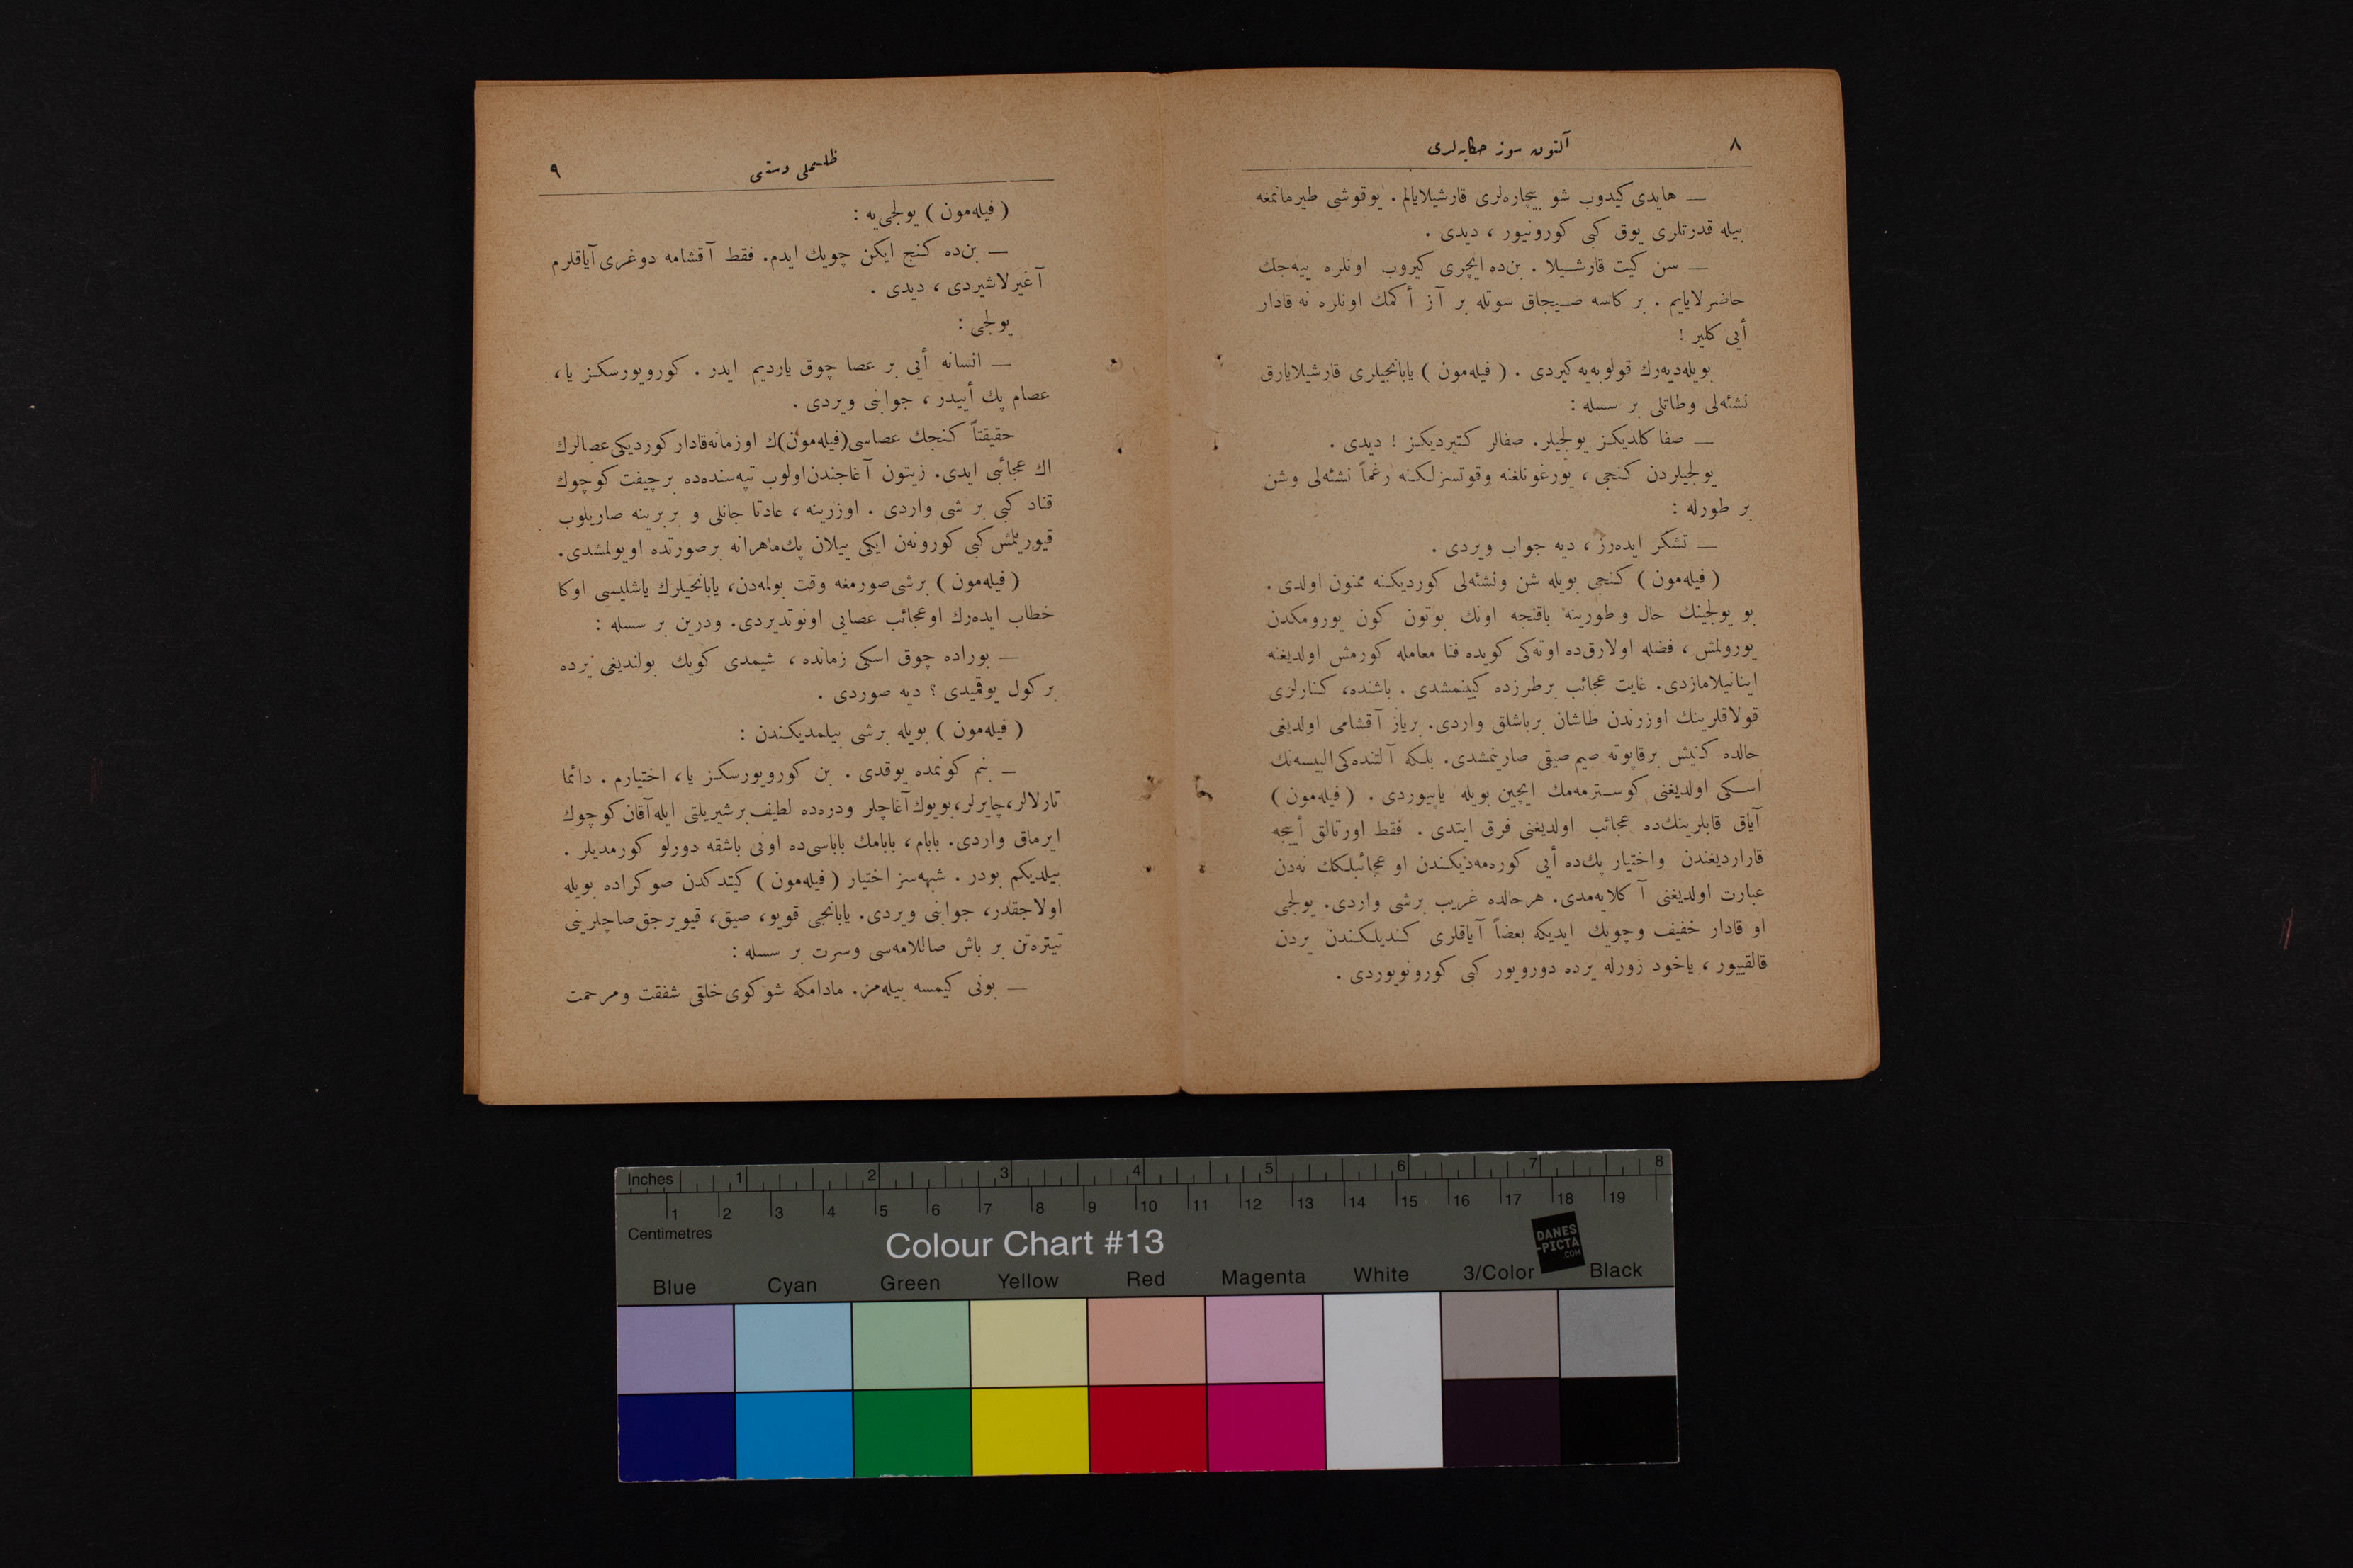 ٨
آلتون سوز حكایه‌لری
— هایدی كیدوب شو بیچاره‌لری قارشیلایالم . یوقوشی طیرمانمغه
بیله قدرتلری یوق كبی كورونیور ، دیدی .
— سن كیت قارشیلا . بن‌ده ایچری كیروب اونلره ییه‌جك
حاضرلایایم . بر كاسه صیجاق سوتله بر آز أكمك اونلره نه قادار
أیی كلیر !
بویله‌دیه‌رك قولوبه‌یه كیردی . ( فیله‌مون ) یابانجیلری قارشیلایارق
نشئه‌لی وطاتلی بر سسله :
— صفا كلدیكز یولجیلر. صفالر كتیردیكز ! دیدی .
یولجیلردن كنجی ، یورغونلغنه وقوتسزلكنه رغماً نشئه‌لی وشن
بر طورله :
— تشكر ایده‌رز ، دیه جواب ویردی .
( فیله‌مون ) كنجی بویله شن ونشئه‌لی كوردیكنه ممنون اولدی .
بو یولجینك حال وطورینه باقنجه اونك بوتون كون یورومكدن
یورولمش ، فضله اولارق‌ده اوته‌كی كویده فنا معامله كورمش اولدیغنه
اینانیلامازدی. غایت عجائب برطرزده كیینمشدی . باشنده، كنارلری
قولاقلرینك اوزرندن طاشان برباشلق واردی. بریاز آقشامی اولدیغی
حالده كنیش برقاپوته صیم صیقی صارینمشدی. بلكه آلتنده‌كی البیسه‌نك
اسكی اولدیغنی كوسترمه‌مك ایچین بویله یاپیوردی . ( فیله‌مون )
آیاق قابلرینك‌ده عجائب اولدیغنی فرق ایتدی . فقط اورتالق أییجه
قاراردیغندن واختیار پك‌ده أیی كوره‌مه‌دیكندن او عجائبلكك نه‌دن
عبارت اولدیغنی آ كلایه‌مدی. هرحالده غریب برشی واردی. یولجی
او قادار خفیف وچویك ایدیكه بعضاً آیاقلری كندیلكندن یردن
قالقییور ، یاخود زورله یرده دورویور كبی كورونویوردی .
٩
طلسملی دستی
( فیله‌مون ) یولجی‌یه :
— بن‌ده كنج ایكن چویك ایدم. فقط آقشامه دوغری آیاقلرم
آغیرلاشیردی ، دیدی .
یولجی :
— انسانه أیی بر عصا چوق یاردیم ایدر . كورویورسكز یا،
عصام پك أییدر ، جوابنی ویردی .
حقیقتاً كنجك عصاسی(فیله‌مون)ك اوزمانه‌قادار كوردیكی عصالرك
اك عجائبی ایدی. زیتون آغاجندن‌اولوب تپه‌سنده‌ده برچیفت كوچوك
قناد كبی بر شی واردی . اوزرینه ، عادتا جانلی و بربرینه صاریلوب
قیوریلمش كبی كورونه‌ن ایكی ییلان پك‌ماهرانه برصورتده اویولمشدی.
( فیله‌مون ) برشی صورمغه وقت بولمه‌دن، یابانجیلرك یاشلیسی اوكا
خطاب ایده‌رك اوعجائب عصایی اونوتدیردی. ودرین بر سسله :
— بوراده چوق اسكی زمانده ، شیمدی كویك بولندیغی یرده
بر كول یوقمیدی ؟ دیه صوردی .
( فیله‌مون ) بویله برشی بیلمدیكندن :
— بنم كونمده یوقدی . بن كورویورسكز یا، اختیارم . دائما
تارلالر،چایرلر،بویوك آغاچلر ودره‌ده لطیف برشیریلتی ایله آقان كوچوك
ایرماق واردی. بابام ، بابامك باباسی‌ده اونی باشقه دورلو كورمدیلر .
بیلدیكم بودر . شبهه‌سز اختیار ( فیله‌مون ) كیتدكدن صوكراده بویله
اولاجقدر، جوابنی ویردی. یابانجی قویو، صیق، قیویرجق‌صاچلرینی
تیتره‌تن بر باش صاللامه‌سی وسرت بر سسله :
— بونی كیمسه بیله‌مز. مادامكه شو كوی خلقی شفقت ومرحمت
Inches 1 2 3 4 5 6 7 8
1 2 3 4 5 6 7 8 9 10 11 12 13 14 15 16 17 18 19
Centimetres
Colour Chart #13
DANES
-PICTA
.COM
Blue Cyan Green Yellow Red Magenta White 3/Color Black